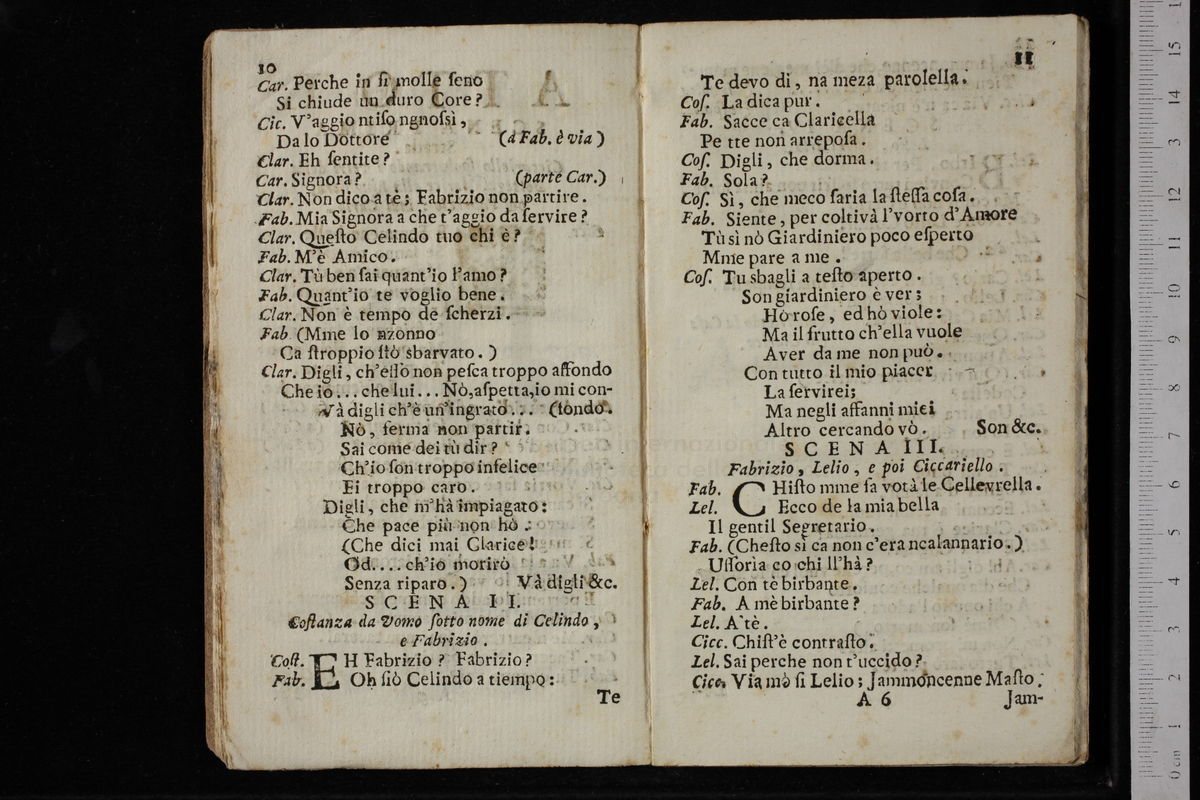 10
Car. Perche in ſi molle ſeno
Si chiude un duro Core?
Cic. V'aggio ntiſo ngnoſsì,
Da lo Dottore (à Fab. è via)
Clar. Eh ſentite?
Car. Signora? (parte Car.)
Clar. Non dico a tè; Fabrizio non partire.
Fab. Mia Signora a che t'aggio da ſervire?
Clar. Queſto Celindo tuo chi è?
Fab. M'è Amico.
Clar. Tù ben ſai quant'io l'amo?
Fab. Quant'io te voglio bene.
Clar. Non è tempo de ſcherzi.
Fab (Mme lo nzonno
Ca ſtroppio ſtò sbarvato.)
Clar. Digli, ch'eſſo non peſca troppo affondo
Che io... che lui... Nò, aſpetta, io mi con-
Và digli ch'è un'ingrato... (fondo.
Nò, ferma non partir.
Sai come dei tù dir?
Ch'io ſon troppo infelice
Ei troppo caro.
Digli, che m'hà impiagato:
Che pace più non hò.
(Che dici mai Clarice!
Od.... ch'io morirò
Senza riparo.) Và digli &c.
SCENA II.
Coſtanza da Vomo ſotto nome di Celindo,
e Fabrizio.
Coſt. EH Fabrizio? Fabrizio?
Fab. Oh ſiò Celindo a tiempo:
Te
11
Te devo di, na meza parolella.
Coſ. La dica pur.
Fab. Sacce ca Claricella
Pe tte non arrepoſa.
Coſ. Digli, che dorma.
Fab. Sola?
Coſ. Sì, che meco ſaria la ſteſſa coſa.
Fab. Siente, per coltivà l'vorto d'Amore
Tù sì nò Giardiniero poco eſperto
Mme pare a me.
Coſ. Tu sbagli a teſto aperto.
Son giardiniero è ver;
Hò roſe, ed hò viole:
Ma il frutto ch'ella vuole
Aver da me non può.
Con tutto il mio piacer
La ſervirei;
Ma negli affanni miei
Altro cercando vò. Son &c.
SCENA III.
Fabrizio, Lelio, e poi Ciccariello.
Fab. CHiſto mme fa votà le Cellevrella.
Lel. Ecco de la mia bella
Il gentil Segretario.
Fab. (Cheſto sì ca non c'era ncalannario.)
Uſſorìa co chi ll'hà?
Lel. Con tè birbante.
Fab. A mè birbante?
Lel. A' tè.
Cicc. Chiſt'è contraſto.
Lel. Sai perche non t'uccido?
Cicc. Via mò ſi Lelio; Jammoncenne Maſto.
A 6 Jam-